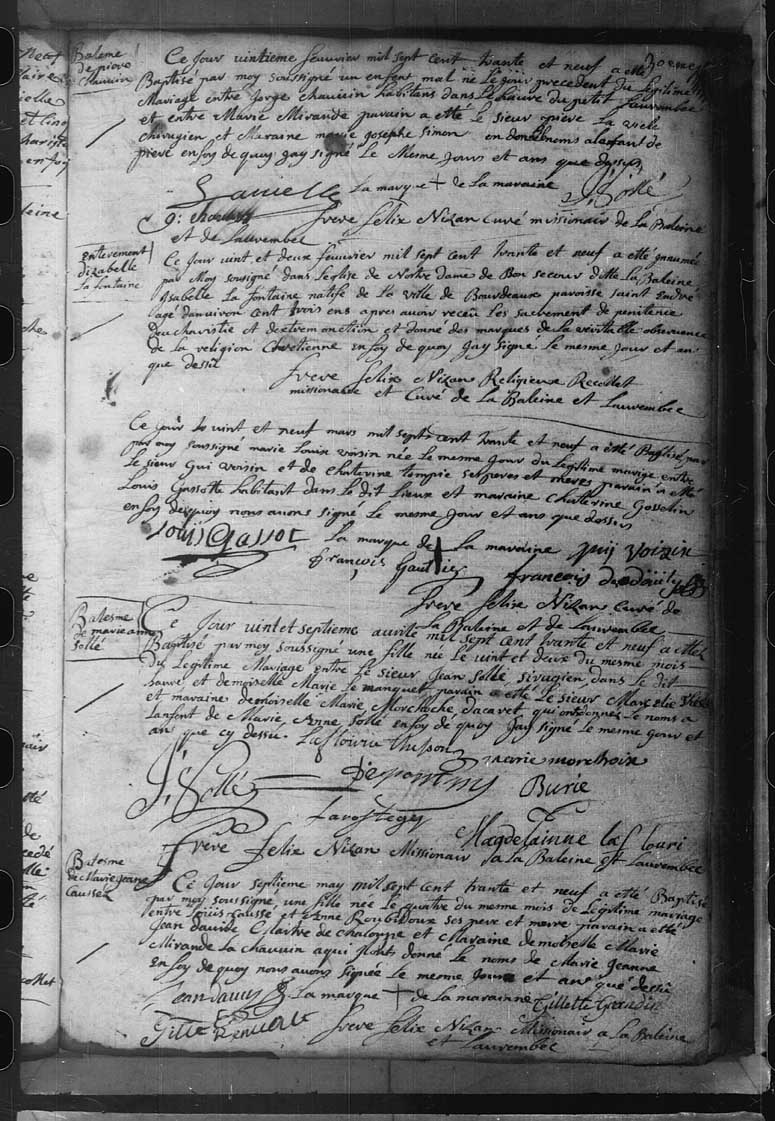 Bateme
de piere
Chauvin
Ce Jour vintieme feuvrier mil sept cent trante et neuf a etté
Baptisé par moy soussigné un enfent mal né Le jour precedent du Legitime
Mariage entre Jorge chauvin habitans dans Le havre du petit Laurembec
et entre Marie Mirande parain a etté Le sieur piere La vielle
chirugien et Maraine marie josephe simon on donné noms a lanfant de
piere en foy de quoy jay signé Le Mesme Jours et ans que dessus
Lavielle La marque + de La maraine J. Sollé
g: chauvin frere felix Nizan curé missionair de La Baleine
et de Laurembec
Enterement
dizabelle
La fontaine
Ce Jour vint et deux feuvrier mil sept cent trante et neuf a etté
par Moy sousigné dans Leglise de Notre Dame de Bon secour ditte La Baleine
ysabelle La fontaine natife de La ville de Bourdeaux paroisse saint Andre
agé danviron cent trois ens apres avoir receu Les sacrement de penitence
deucharistie et dextremonction et donné des marques de la veritelle
de La religion Chretienne en foy de quoy jay signé le mesme Jour et an
que dessus
frere felix Nizan Religieux Recollet
missionaire et Curé de La Baleine et Laurembec
Ce jour le vint et neuf mars mil sept cent trante et neuf a été Baptisé par
par moy soussigné marie Louix voisin née Le mesme Jour du Legitime mariage entre
Le sieur Gui voisin et de Chaterine tompie ses peres et meres parain a etté
Louis Gassotte habitant dans Le dit Lieux et maraine Chaterine Gosselin
en foy de quoy nous avons signé le mesme Jour et ans que dessus
Louis Gassot La marque de + La maraine guy voizin
françois Gautier francois
frere felix Nizan Curé de
La Baleine et de Laurembec
Batesme
de marie anne
sollé
Ce Jour vint et septieme avrille mil sept cent trante et neuf a etté
Baptisé par moy soussigné une fille née Le vint et deux du mesme mois
du Legitime Mariage entre Le sieur Jean sollé sirugien dans Le dit
havre et demoiselle Marie Le manquet parain a etté Le sieur
et maraine demoiselle Marie Morchoche Dacaret qui ont donnez Le noms a
Lanfent de Marie Anne Sollé en foy de quoy Jay signé Le mesme jour et
an que cy dessu. Lafleurie
marie morchoix
J. Sollé Burie
Magdelainne la flouri
Frere felix Nizan Missionair da La Baleine et Laurembec
Batesme
de Marie jeane
Causse
Ce Jour septieme may mil sept cent trante et neuf a etté Baptisé
par moy soussigné une fille née Le quatre du mesme mois de Legitime mariage
entre Louis Causse et Anne Roubidoux ses pere et merre parain a etté
Jean davide Maitre de chaloppe et Maraine demoiselle Marie
Mirande La chauvin a qui Ilont donné Le noms de Marie Jeanne
En foy de quoy nous avons signée Le mesme Jour et ans que dessu
Jean La marque + de La marainne Gillette Grandin
Gille Renuale frere felix Nizan Missionair a La Baleine
et Laurembec